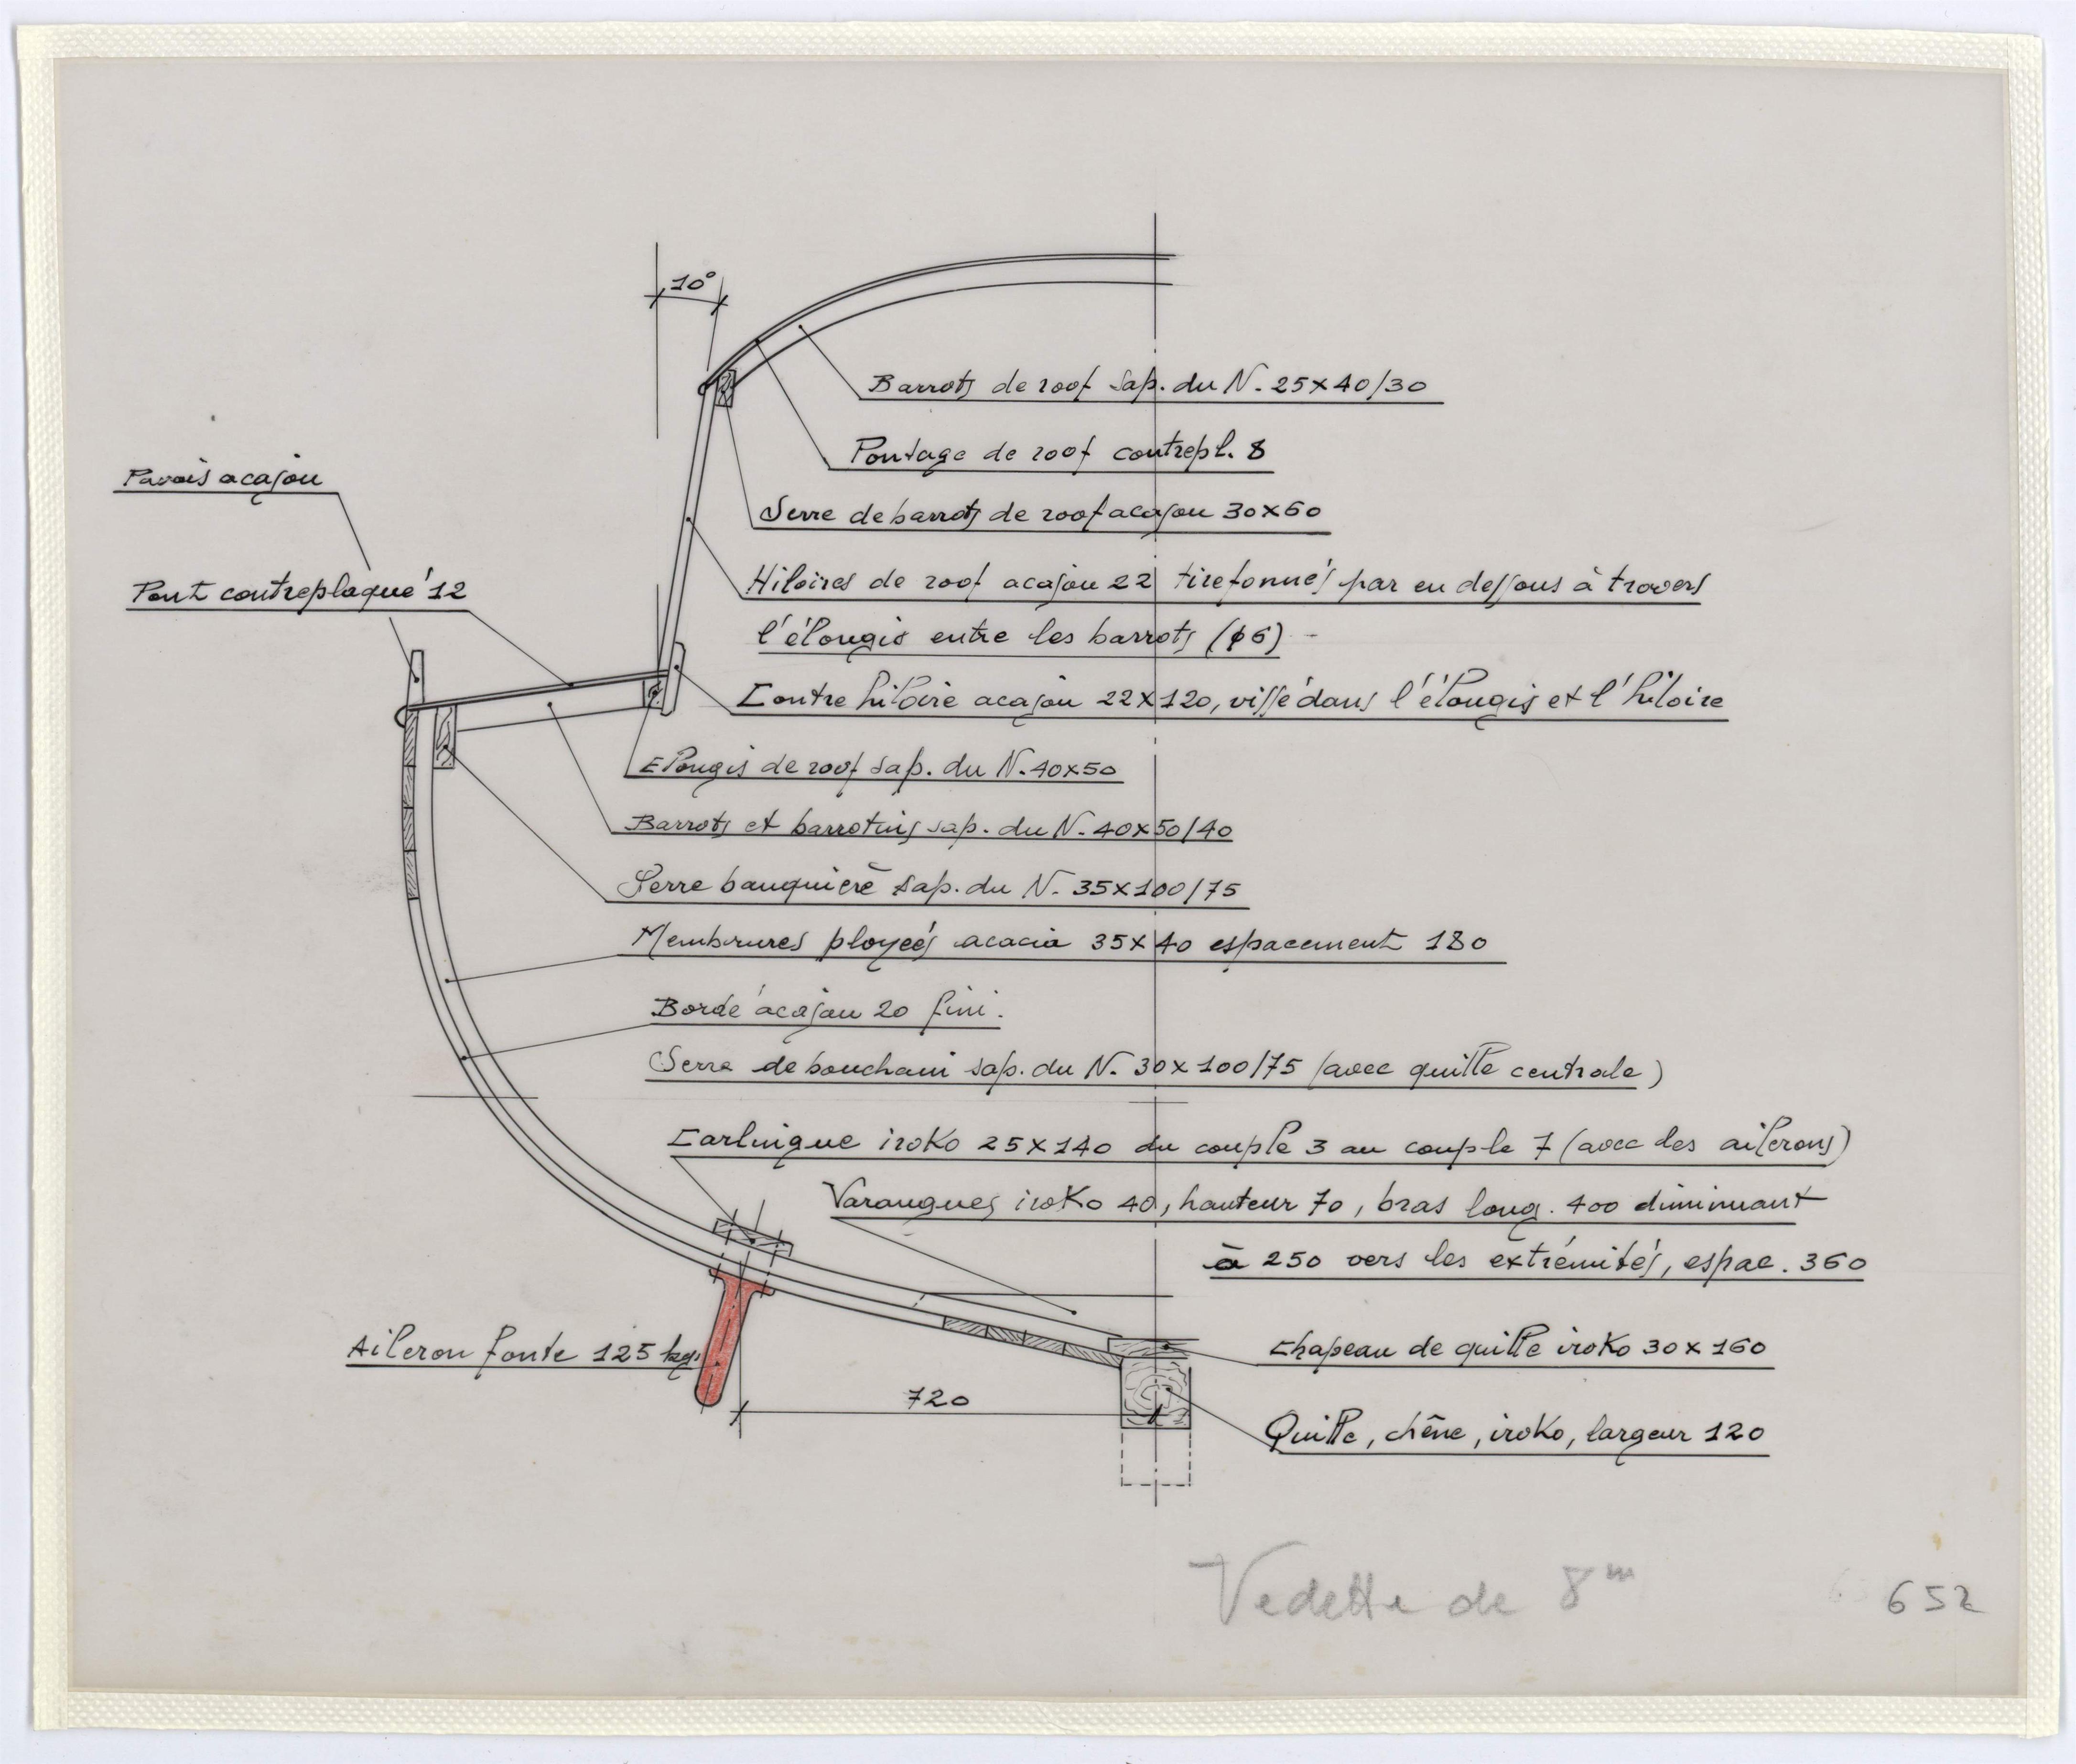 10°
Barrots de roof sap. du N. 25x40/30
Pontage de roof contrepl. 8
Pavois acajou
Serre de barrots de roof acajou 30x60
Hiloires de roof acajou 22 tirefonnés par en dessous à travers
Pont contreplaqué 12
l'élongis entre les barrots (ϕ6)
Contre hiloire acajou 22x120, vissé dans l'élongis et l'hiloire
Elongis de roof sap. du N. 40x50
Barrots et barrotins sap. du N. 40x50/40
Serre bauquière sap. du N. 35x100/75
Membrures ployées acacia 35x40 espacement 180
Bordé acajou 20 fini.
Serre de bouchain sap. du N. 30x100/75 (avec quille centrale)
Carlingue iroko 25x140 du couple 3 au couple 7 (avec les ailerons)
Varangues iroko 40, hauteur 70, bras long. 400 diminuant
à 250 vers les extrémités, espac. 360
Aileron fonte 125 kgs
Chapeau de quille iroko 30x160
720
Quille, chêne, iroko, largeur 120
Vedette de 8m
652